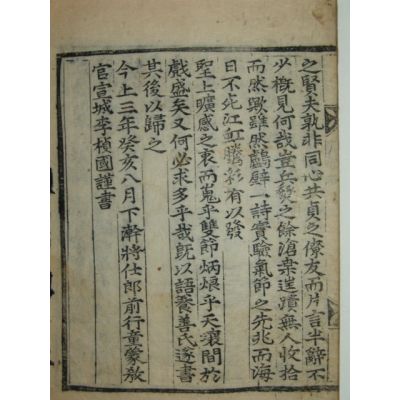 之賢夫孰非同心共貞之僚友而片言半辭不
少概見何哉豈兵燹之餘滄桑遺蹟無人收拾
而然歟雖然一詩實驗氣節之先兆而海
日不死江虹騰彩有以發
聖上曠感之衷而嵬乎雙節炳烺乎天壤間於
戲盛矣又何必求多乎哉旣以語養善氏遂書
其後以歸之
今上三年癸亥八月下澣將仕郎前行童蒙敎
官宣城李楨國謹書